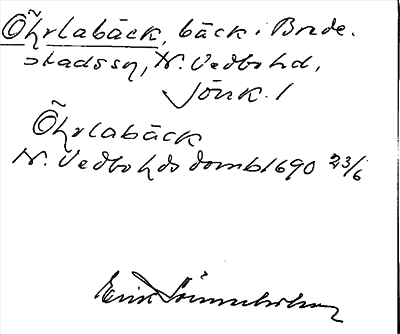 Öhrlabäck, bäck i Brede-
stadssn, N. Vedbo hd,
Jönk. l
Öhrlabäck
N. Vedbo hds domb 1690 23/6
Erik